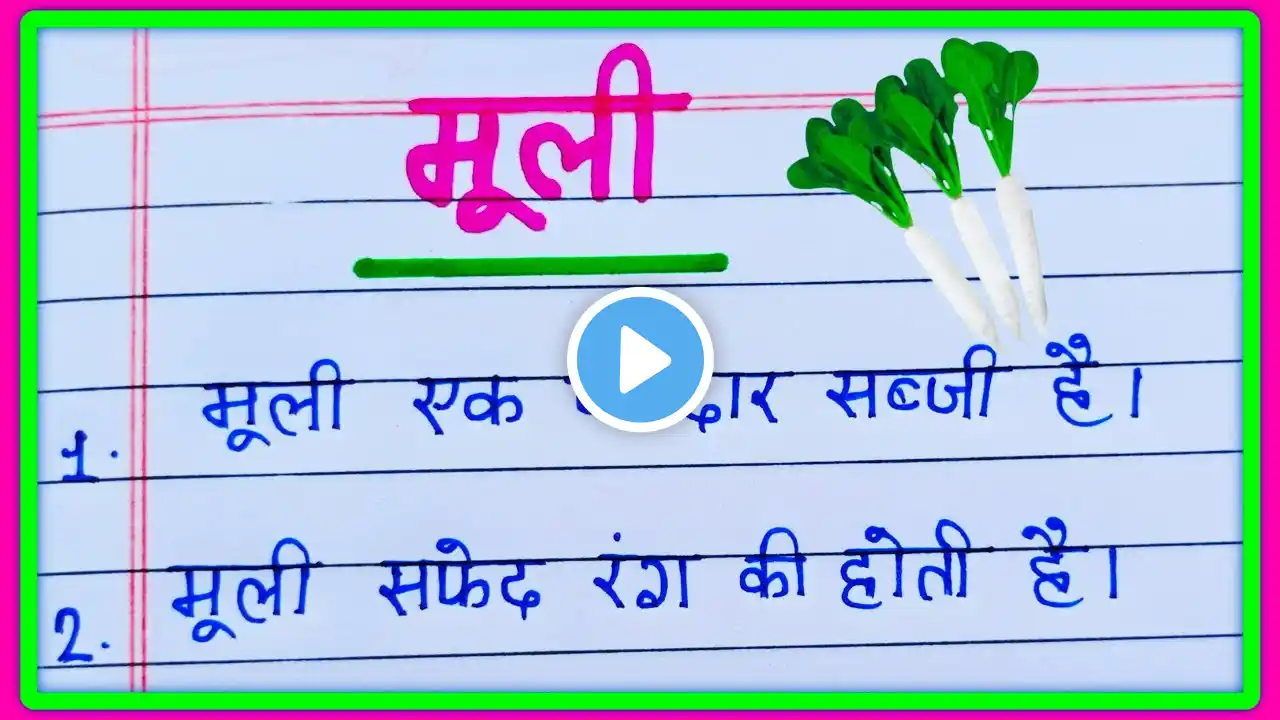 मूली
1. मूली एक दार सब्जी है।
2. मूली सफेद रंग की होती है।